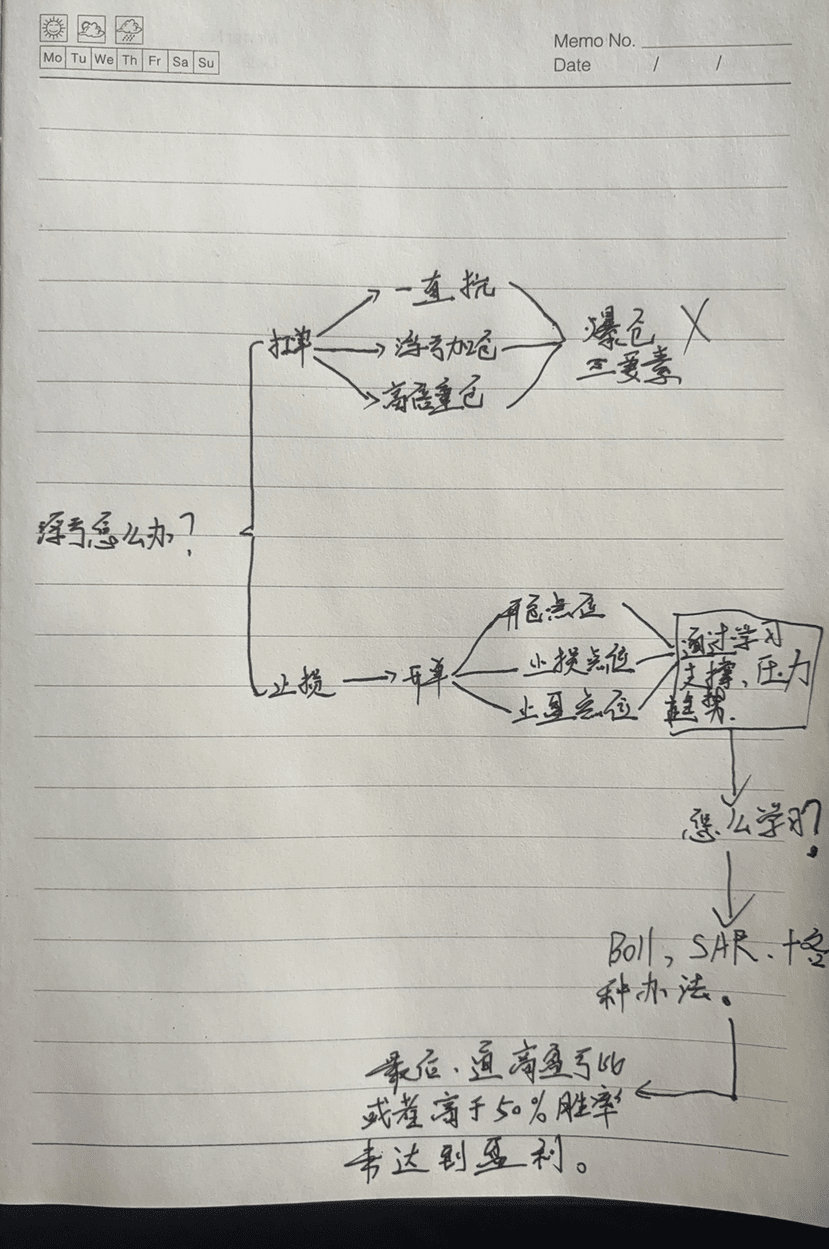 Memo No.
Mo Tu We Th Fr Sa Su
Date / /
一直抗
扛单
浮亏加仓
爆仓 X
三要素
高倍重仓
浮亏怎么办?
开仓点位
通过学习
止损
开单
止损点位
支撑、压力
止盈点位
趋势.
怎么学习?
Boll, SAR.十各
种办法。
最后.通高盈亏比
或者高于50%胜率
来达到盈利。